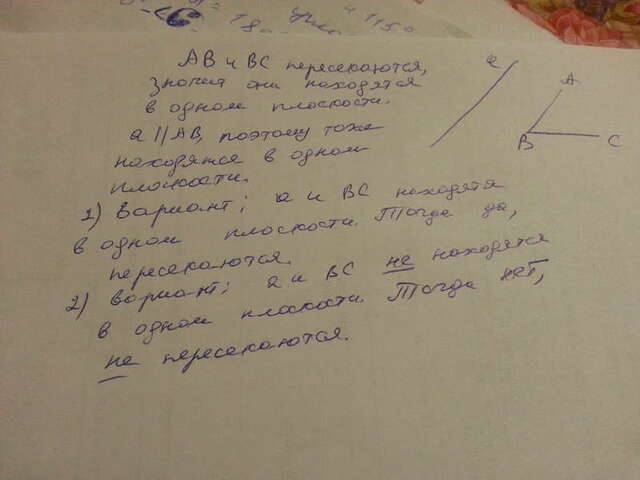 18
115°
АВ и ВС пересекаются,
значит они находятся
в одном плоскости.
а || АВ, поэтому тоже
находятся в одном
плоскости.
1) Вариант: а и ВС находятся
в одном плоскости. Тогда да,
пересекаются.
2) вариант: а и ВС не находятся
в одном плоскости. Тогда нет,
не пересекаются.
а
А
В
С